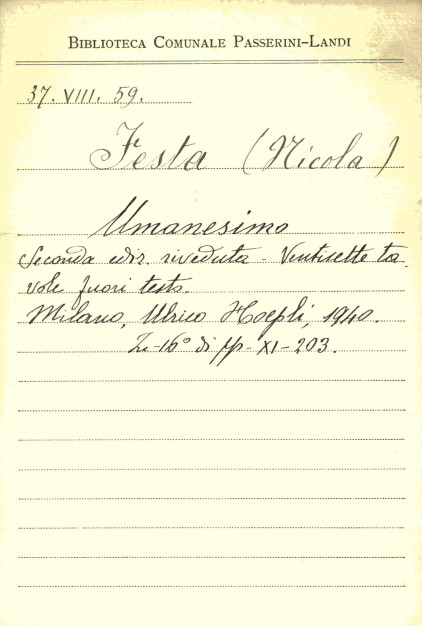 BIBLIOTECA COMUNALE PASSERINI-LANDI
37. VIII. 59.
Festa (Nicola)
Umanesimo
Seconda ediz. riveduta - Ventisette ta-
vole fuori testo.
Milano, Ulrico Hoepli, 1940.
In-16° di pp- XI-203.